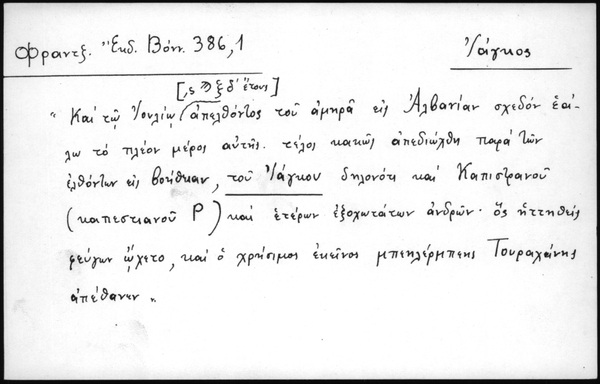 Φραντζ. Ἔκδ. Βόνν. 386,1
Ἰάγκος
[,ϛϠξδ´ ἔτους]
"Καὶ τῷ Ἰουλίῳ ἀπελθόντος τοῦ ἀμηρᾶ εἰς Ἀλβανίαν σχεδόν ἑά-
λω τὸ πλέον μέρος αὐτῆς. τέλος κακῶς ἀπεδιώχθη παρὰ τῶν
ἐλθόντων εἰς βοήθειαν, τοῦ Ἰάγκου δηλονότι καὶ Καπιστρανοῦ
(καπεστιανοῦ P) καὶ ἑτέρων ἐξοχωτάτων ἀνδρῶν· ὅς ἡττηθείς
φεύγων ᾤχετο, καὶ ὁ χρήσιμος ἐκεῖνος μπεηλέρμπεης Τουραχάνης
ἀπέθανεν"